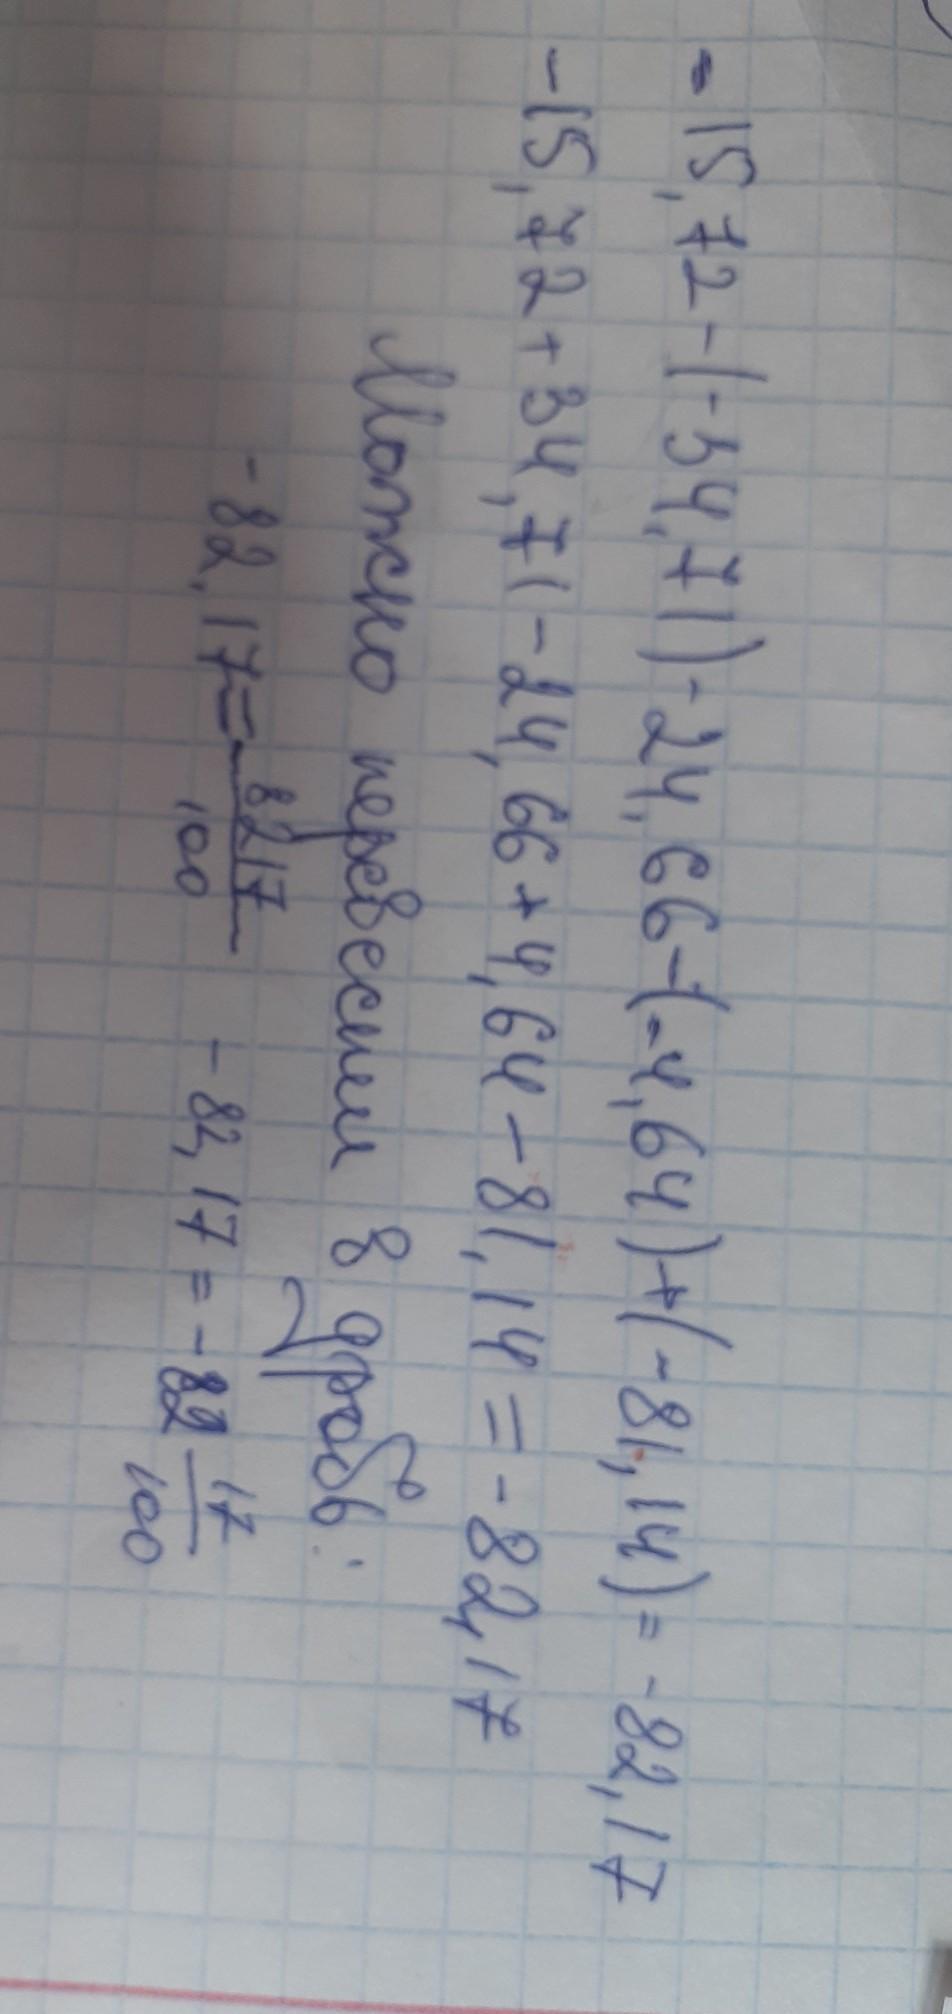 - 15,72 - (-34,71) - 24,66 - (-4,64) + (-81,14) = -82,17
-15,72 + 34,71 - 24,66 + 4,64 - 81,14 = -82,17
Можно перевести в дробь:
-82,17 = -8217/100 -82,17 = -82 17/100